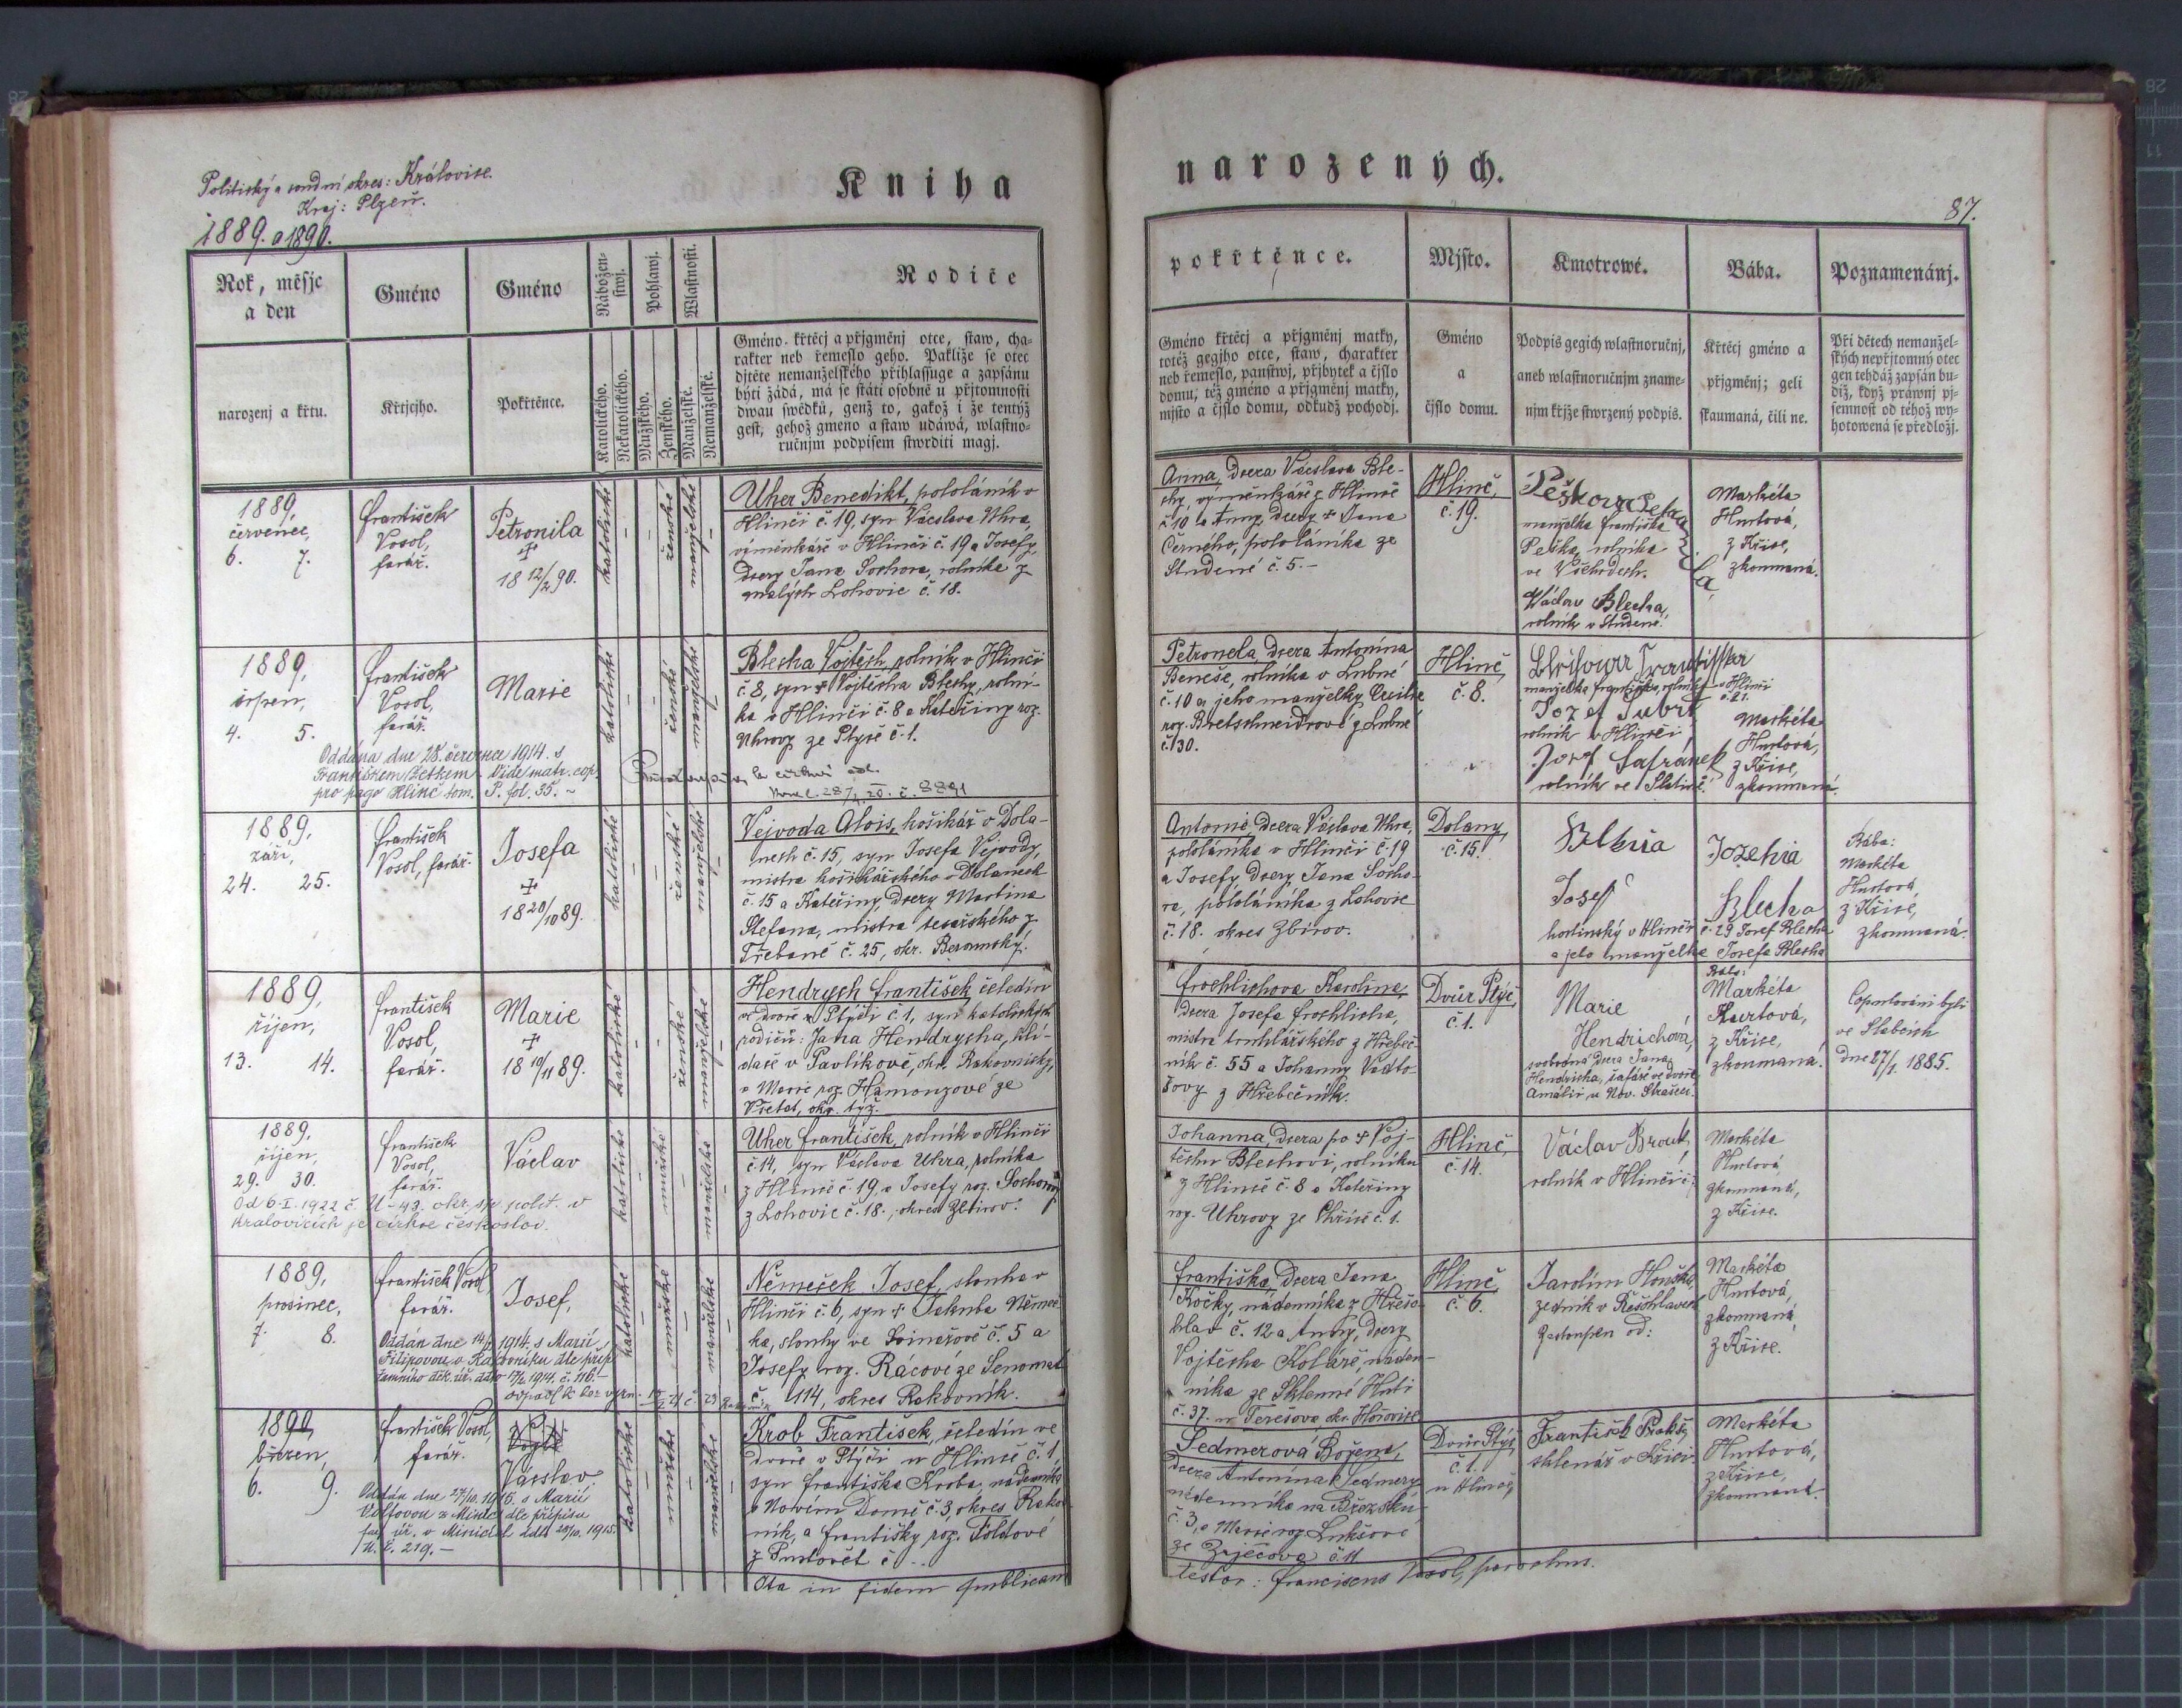 Politický a soudní okres: Kralovice.
Kraj: Plzeň.
1889. a 1890.
Kniha
narozených.
87.
Rok, měsjc
a den
narozenj a křtu.
Gméno
Křtjcjho.
Gméno
Pokřtěnce.
Nábožen-
stwj.
Katolického.
Nekatolického.
Pohlawj.
Mužského.
Ženského.
Wlastnosti.
Manželské.
Nemanželské.
Rodiče
Gméno křtěcj a přjgměnj otce, staw, cha-
rakter neb řemeslo geho. Pakliže se otec
djtěte nemanželského přihlassuge a zapsánu
býti žádá, má se státi osobně u přjtomnosti
dwau swědků, genž to, gakož i že tentýž
gest, gehož gméno a staw udáwá, wlastno-
ručnjm podpisem stwrditi magj.
pokřtěnce.
Gméno křtěcj a přjgměnj matky,
totéž gegjho otce, staw, charakter
neb řemeslo, panstwj, přjbytek a čjslo
domu, též gméno a přjgměnj matky,
mjsto a čjslo domu, odkudž pochodj.
Mjsto.
Gméno
a
čjslo domu.
Kmotrowé.
Podpis gegich wlastnoručnj,
aneb wlastnoručnjm zname-
njm křjže stwrzený podpis.
Bába.
Křtěcj gméno a
přjgměnj; geli
skaumaná, čili ne.
Poznamenánj.
Při dětech nemanžel-
ských nepřjtomný otec
gen tehdáž zapsán bu-
diž, když práwnj pj-
semnost od téhož wy-
hotowená se předložj.
1889,
červenec,
6. 7.
František
Vosol,
farář.
Petronila
✝
18 12/2 90.
katolické
ženské
manželské
Uher Benedikt, pololáník v
Hlinči č. 19, syn Václava Uhra,
výměnkáře v Hlinči č. 19 a Josefy,
dcery Jana Sochora, rolníka z
malých Lohovic č. 18.
Anna, dcera Václava Ble-
chy, výměnkáře z Hlinče
č 10 a Anny, dcery ✝ Jana
Černého, pololáníka ze
Studené č. 5. -
Hlinč,
č. 19.
Pešková
manželka Františka
Peška, rolníka
ve Všehrdech.
Václav Blecha,
rolník v Studené.
Markéta
Hurtová,
z Křice,
zkoumaná.
1889,
srpen,
4. 5.
František
Vosol,
farář.
Marie
katolické
ženské
manželské
Blecha Vojtěch, rolník v Hlinči
č. 8, syn ✝ Vojtěcha Blechy, rolní-
ka v Hlinči č. 8 a Kateřiny roz.
Uhrovy ze Ptyče č. 1.
Oddána dne 28. července 1914. s
Františkem Vide matr. cop.
pro pago Hlinč tom. P. fol. 35. -
Petronela, dcera Antonína
Beneše, rolníka v Lubné
č. 10 a jeho manželky Cecilie
roz. Bretschneidrové z Lubné
č. 30.
Hlinč,
č. 8.
manželka Františka, rolníka v Hlinči
rolník v Hlinči
Josef Šafránek
rolník ve Slatině.
Markéta
Hurtová,
z Křice,
zkoumaná.
1889,
září,
24. 25.
František
Vosol, farář.
Josefa
✝
18 20/10 89.
katolické
ženské
manželské
Vejvoda Alois, košikář v Dola-
nech č. 15, syn Josefa Vejvody,
mistra košikářského v Dolanech
č. 15 a Kateřiny, dcery Martina
Štefana, mistra tesařského z
Třebaně č. 25, okr. Berounský.
Antonie, dcera Václava Uhra,
pololáníka v Hlinči č. 19
a Josefy, dcery Jana Socho-
ra, pololáníka z Lohovic
č. 18. okres Zbirov.
Dolany,
č. 15.
Blecha Jozefa
Josef Blecha
hostinský v Hlinči č. 29 Josef Blecha
a jeho manželka Josefa Blecha
Bába:
Markéta
Hurtová,
z Křice,
zkoumaná.
1889,
říjen,
13. 14.
František
Vosol,
farář.
Marie
✝
18 19/11 89.
katolické
ženské
manželské
Hendrych František, čeledín
ve dvoře v Ptýči č. 1, syn katolických
rodičů: Jana Hendrycha, hlí-
dače v Pavlíkově, okr. Rakovnický,
a Marie roz. Hamouzové ze
Všetat, okr. týž.
Froehlichova Karolina,
dcera Josefa Froehlicha,
mistra truhlářského z Hřebeč-
ník č. 55 a Johanny
z Hřebečník.
Dvůr Ptýč,
č. 1.
Marie
Hendrichová,
svobodná dcera Jana
Hendricha, šafáře ve dvoře
Amálii u Nov. Strašecí.
Bába:
Markéta
Hurtová,
z Křice,
zkoumaná.
Copulováni byli
ve Slabcích
dne 27/1. 1885.
1889,
říjen,
29. 30.
František
Vosol,
farář.
Václav
katolické
mužské
manželské
Uher František, rolník v Hlinči
č. 14, syn Václava Uhra, rolníka
z Hlinče č. 19, a Josefy roz. Sochorovy
z Lohovic č. 18., okres Zbirov.
Od 6. I. 1922 č. U-43. okr. sp. polit. v
Kralovicích je církve českoslov.
Johanna, dcera po ✝ Voj-
těchu Blechovi, rolníku
z Hlinče č. 8 a Kateřiny
roz. Uhrovy ze č. 1.
Hlinč,
č. 14.
Václav Brouk,
rolník v Hlinči
Markéta
Hurtová,
zkoumaná,
z Křice.
1889,
prosinec,
7. 8.
František Vosol
farář.
Josef,
katolické
mužské
manželské
Němeček Josef, sloužka v
Hlinči č. 6, syn ✝ Jakuba Němeč-
ka, slouhy ve Svinařově č. 5 a
Josefy roz. Racové ze Senomat
č. 114, okres Rakovník.
Oddán dne 14/2 1914. s Marií
Filipovou v Rakovníku dle příp.
tamního děk. úř. ddto 17/2. 1914. č. 116. -
Františka, dcera Jana
Kočky, nádenníka z Hřešo-
hlav č. 12 a Anny, dcery
Vojtěcha Koláře, náden-
níka ze Sklenné Huti
č. 37. u Terešova, okr. Hořovice
Hlinč,
č. 6.
Jarolím
zedník v Řešohlavech
zastoupen od:
Markéta
Hurtová,
zkoumaná,
z Křice.
1890,
březen,
6. 9.
František Vosol,
farář.
Václav
katolické
mužské
manželské
Krob František, čeledín ve
dvoře v Ptýči u Hlinče č. 1,
syn Františka Kroba, nádenníka
v Novém Domě č. 3, okres Rakov-
ník, a Františky roz. Foldové
z Pustovět č. ..
Oddán dne 27/10. 1915. s Marií
Voltovou z dle přípisu
far. úř. v ddto 28/10. 1915.
č. 219. -
Sedmerová Božena,
dcera Antonína Sedmery
nádenníka na
č. 3, a Marie roz. Lukšové
ze Zaječova č. 11
Dvůr Ptýč,
č. 1.
u Hlinče,
František
sklenář v Křici.
Markéta
Hurtová,
z Křice,
zkoumaná.
Ita in fidem publicam
testor: Franciscus Vosol, parochus.